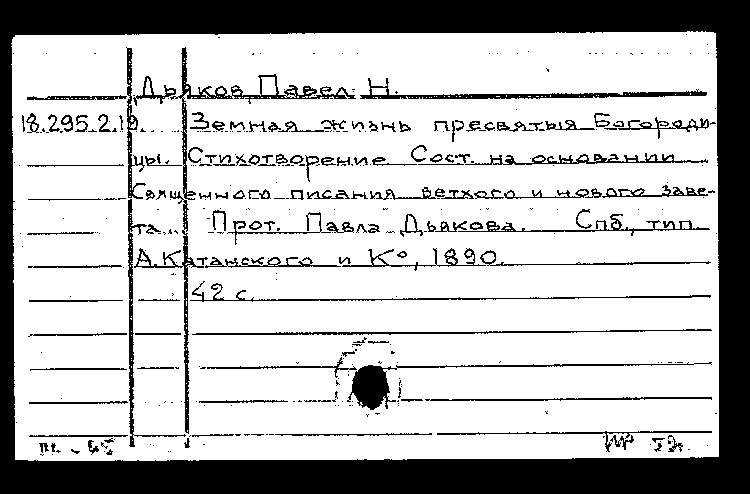 Дьяков, Павел Н.
18.295.2.19. Земная жизнь пресвятыя Богороди-
цы. Стихотворение Сост. на основании
Священного писания ветхого и нового заве-
та... Прот. Павла Дьякова. Спб., тип.
А. Катанского и К°, 1890.
42 с.